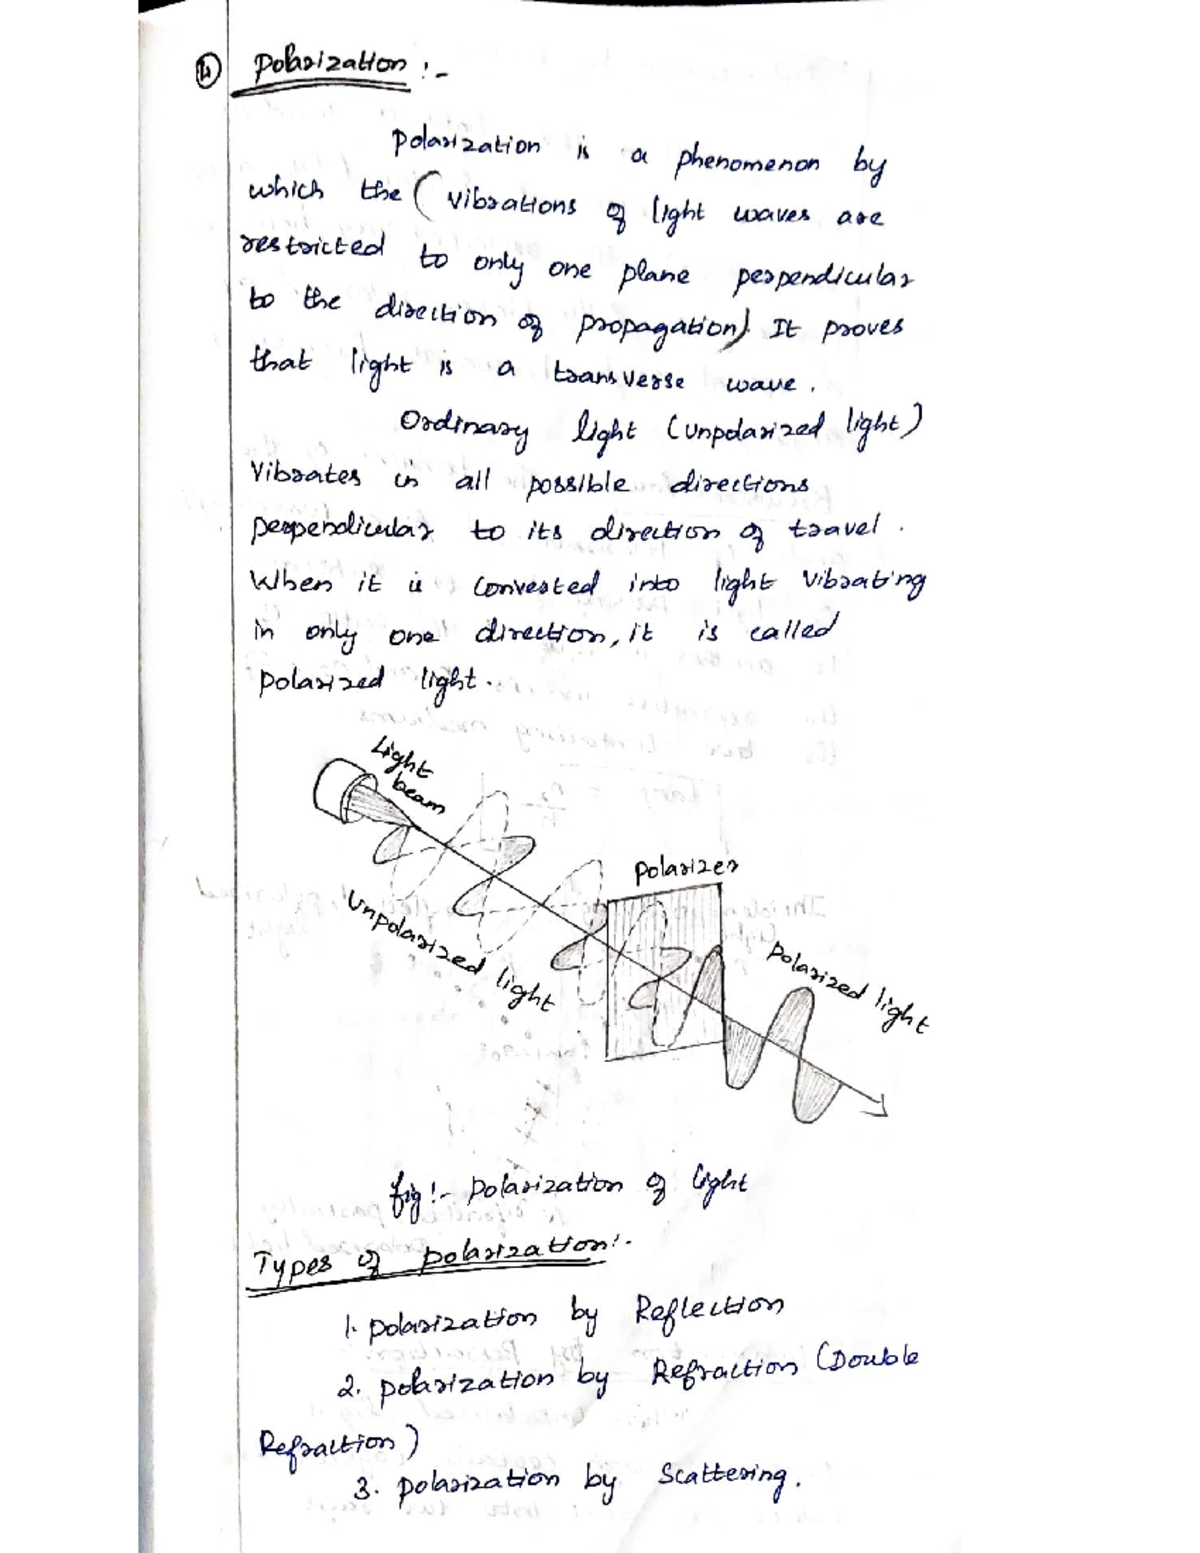 4) Polarization :-
Polarization is a phenomenon by
which the (vibrations of light waves are
restricted to only one plane perpendicular
to the direction of propagation). It proves
that light is a transverse wave.
Ordinary light (unpolarized light)
Vibrates in all possible directions
perpendicular to its direction of travel.
When it is converted into light vibrating
in only one direction, it is called
polarized light.
Light
beam
Polarizer
Unpolarized light
Polarized light
fig:- Polarization of light
Types of polarization:-
1. Polarization by Reflection
2. Polarization by Refraction (Double
Refraction)
3. Polarization by Scattering.